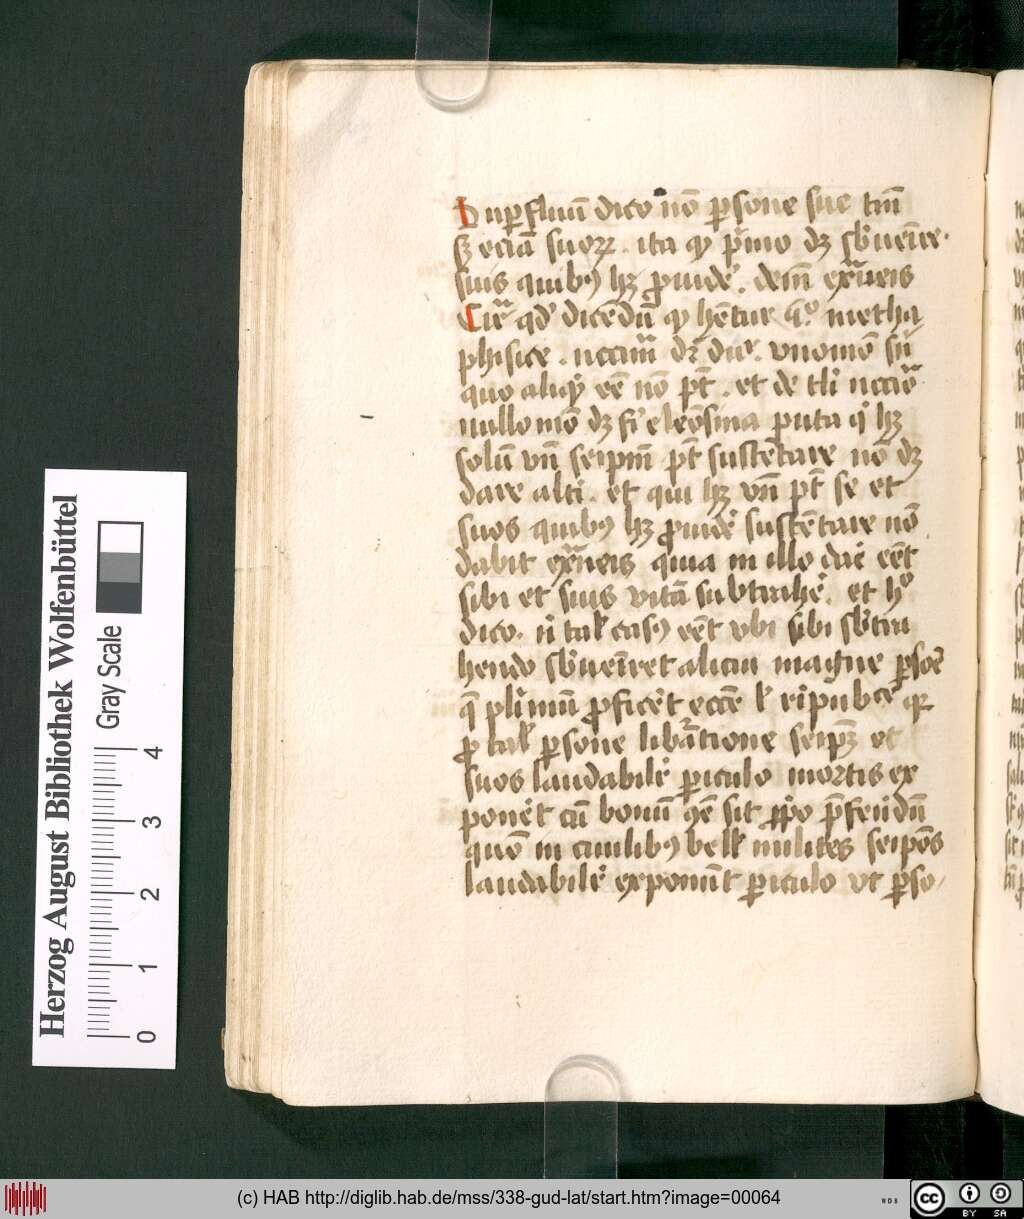 Supfluū dico nō ꝑsone sue tm̄
sꝫ eciā suoꝝ . ita qꝫ p̄mo dꝫ sb̄ueīre .
suis quibꝯ hꝫ ꝓuide᷑ . dem̄ ext̄neis
Circa qd̓ dicēdū qꝫ hētur q̊ metha
phisice . nccm̄ dr̄ du . vnomō sn̄
quo aliqͥ eē nō pt̄ . et de tli nccīo
nullo mō dꝫ fi᷑ eleōsina puta qͥ hꝫ
solū vn̄ seipm̄ pt̄ sustētare nō dꝫ
dare alti . et qui hꝫ vn̄ pt̄ se et
suos quibꝯ hꝫ ꝓuide᷑ sustētare nō
dabit ext̄neis quia in illo dare eēt
sibi et suis vitā subtrahe᷑ . et hͦ
dico . n̄ tal casꝯ eēt vbi sibi sb̄tra
hendo sb̄ueīret alicui magne ꝑsoē
q̄ plīmū ꝓficēt ecce l̓ reipubce qꝛ
ꝓ tal ꝑsone libātione seipꝫ et
suos laudabilit᷑ ꝑiculo mortis ex
ponēt cū bonū q̄e sit ꝓp̄o p̄ferēdū
quō in ciuilibꝯ bell̓ milites seipōs
laudabilit᷑ exponūt ꝑiculo vt ꝑso
Herzog August Bibliothek Wolfenbüttel
Gray Scale
0 1 2 3 4
(c) HAB http://diglib.hab.de/mss/338-gud-lat/start.htm?image=00064
WDB
cc BY SA